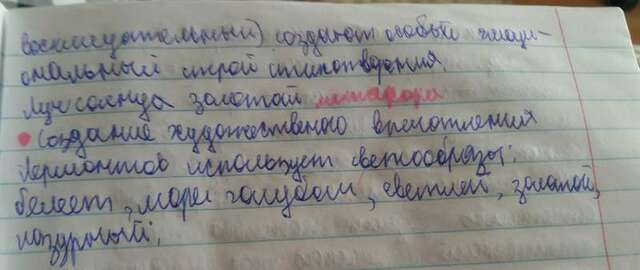 восклицательный) создают особый эмоци-
ональный строй стихотворения.
Луч солнца золотой метафора
• Создание художественного впечатления
Лермонтов использует цветообразы:
белеет, море голубом, светлей, золотой,
лазурный;